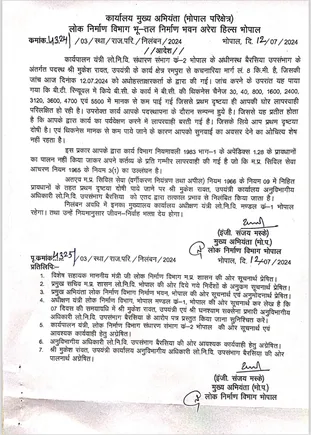 कार्यालय मुख्य अभियंता (भोपाल परिक्षेत्र)
लोक निर्माण विभाग भू–तल निर्माण भवन अरेरा हिल्स भोपाल
क्रमांक 4324/03/स्था/राज.परि/निलंबन/2024 भोपाल, दि. 12/07/2024
// आदेश //
कार्यपालन यंत्री लो.नि.वि, संधारण संभाग क्रं–2 भोपाल के अधीनस्थ बैरसिया उपसंभाग
के अंतर्गत पदस्थ श्री मुकेश रावत, उपयंत्री के कार्य क्षेत्र रमपुरा से कचनारिया मार्ग लं. 8 कि.मी है, जिसकी
जांच आज दिनांक 12.07.2024 को अधोहस्ताक्षरकर्ता के द्वारा की गई। जांच करने के उपरांत यह पाया
गया कि बी.टी. रिन्यूवल में किये बी.सी. के कार्य में बी.सी. की थिकनेस चैनेज 30, 40, 800, 1600, 2400,
3120, 3600, 4700 एवं 5500 में मानक से कम पाई गई जिससे प्रथम दृष्टया ही आपकी घोर लापरवाही
परिलक्षित हो रही है। उपरोक्त कार्य आपके पदस्थापना के दौरान सम्पन्न हुये है। जिससे यह प्रतीत होता
है कि आपके द्वारा कार्य का पर्यवेक्षण करने में लापरवाही बरती गई है। जिसके लिये आप प्रथम दृष्टया
दोषी है। एवं थिकनेस मानक से कम पाये जाने के कारण आपको सुनवाई का अवसर देने का औचित्य शेष
नही रहता है।
इस प्रकार आपके द्वारा कार्य विभाग नियमावली 1983 भाग–1 के अपेंडिक्स 1.28 के प्रावधानों
का पालन नहीं किया जाकर अपने कर्तव्य के प्रति गम्भीर लापरवाही की गई है जो कि म.प्र. सिविल सेवा
आचरण नियम 1965 के नियम 3(1) का उल्लंघन है।
अतएव म.प्र. सिविल सेवा (वर्गीकरण नियंत्रण तथा अपील) नियम 1966 के नियम 09 में निहित
प्रावधानों के तहत प्रथम दृष्टया दोषी पाये जाने पर श्री मुकेश रावत, उपयंत्री कार्यालय अनुविभागीय
अधिकारी लो.नि.वि. उपसंभाग बैरसिया को एतद द्वारा तत्काल प्रभाव से निलंबित किया जाता है।
निलंबन अवधि में इनका मुख्यालय कार्यालय अधीक्षण यंत्री लो.नि.वि. मण्डल क्रं–1 भोपाल
रहेगा। तथा उन्हें नियमानुसार जीवन–निर्वाह भत्ता देय होगा।
(इंजी. संजय मस्के)
मुख्य अभियंता (भो.प.)
लोक निर्माण विभाग भोपाल
भोपाल, दि. 12/07/2024
पृ.क्रमांक 4325/03/स्था/राज.परि/निलंबन/2024
प्रतिलिपि:–
1. विशेष सहायक माननीय मंत्री जी लोक निर्माण विभाग म.प्र. शासन की ओर सूचनार्थ प्रेषित।
2. प्रमुख सचिव म.प्र. शासन लो.नि.वि. भोपाल की ओर दिये गये निर्देशों के अनुक्रम सूचनार्थ प्रेषित।
3. प्रमुख अभियंता लोक निर्माण विभाग निर्माण भवन, भोपाल की ओर सूचनार्थ एवं अनुमोदनार्थ प्रेषित।
4. अधीक्षण यंत्री लोक निर्माण विभाग मण्डल क्रं–1, भोपाल की ओर सूचनार्थ कर लेख है कि
07 दिवस की समयावधि में श्री मुकेश रावत, उपयंत्री एवं श्री घनश्याम सक्सेना प्रभारी अनुविभागीय
अधिकारी लो.नि.वि. उपसंभाग बैरसिया के आरोप पत्र प्रस्तुत किया जाना सुनिश्चित करें।
5. कार्यपालन यंत्री, लोक निर्माण विभाग संधारण संभाग क्रं–2 भोपाल की ओर सूचनार्थ एवं
आवश्यक कार्यवाही हेतु अग्रेषित।
6. अनुविभागीय अधिकारी लो.नि.वि. उपसंभाग बैरसिया की ओर आवश्यक कार्यवाही हेतु अग्रेषित।
7. श्री मुकेश रावत, उपयंत्री कार्यालय अनुविभागीय अधिकारी लो.नि.वि. उपसंभाग बैरसिया की ओर
पालनार्थ अग्रेषित।
(इंजी. संजय मस्के)
मुख्य अभियंता (भो.प.)
लोक निर्माण विभाग भोपाल